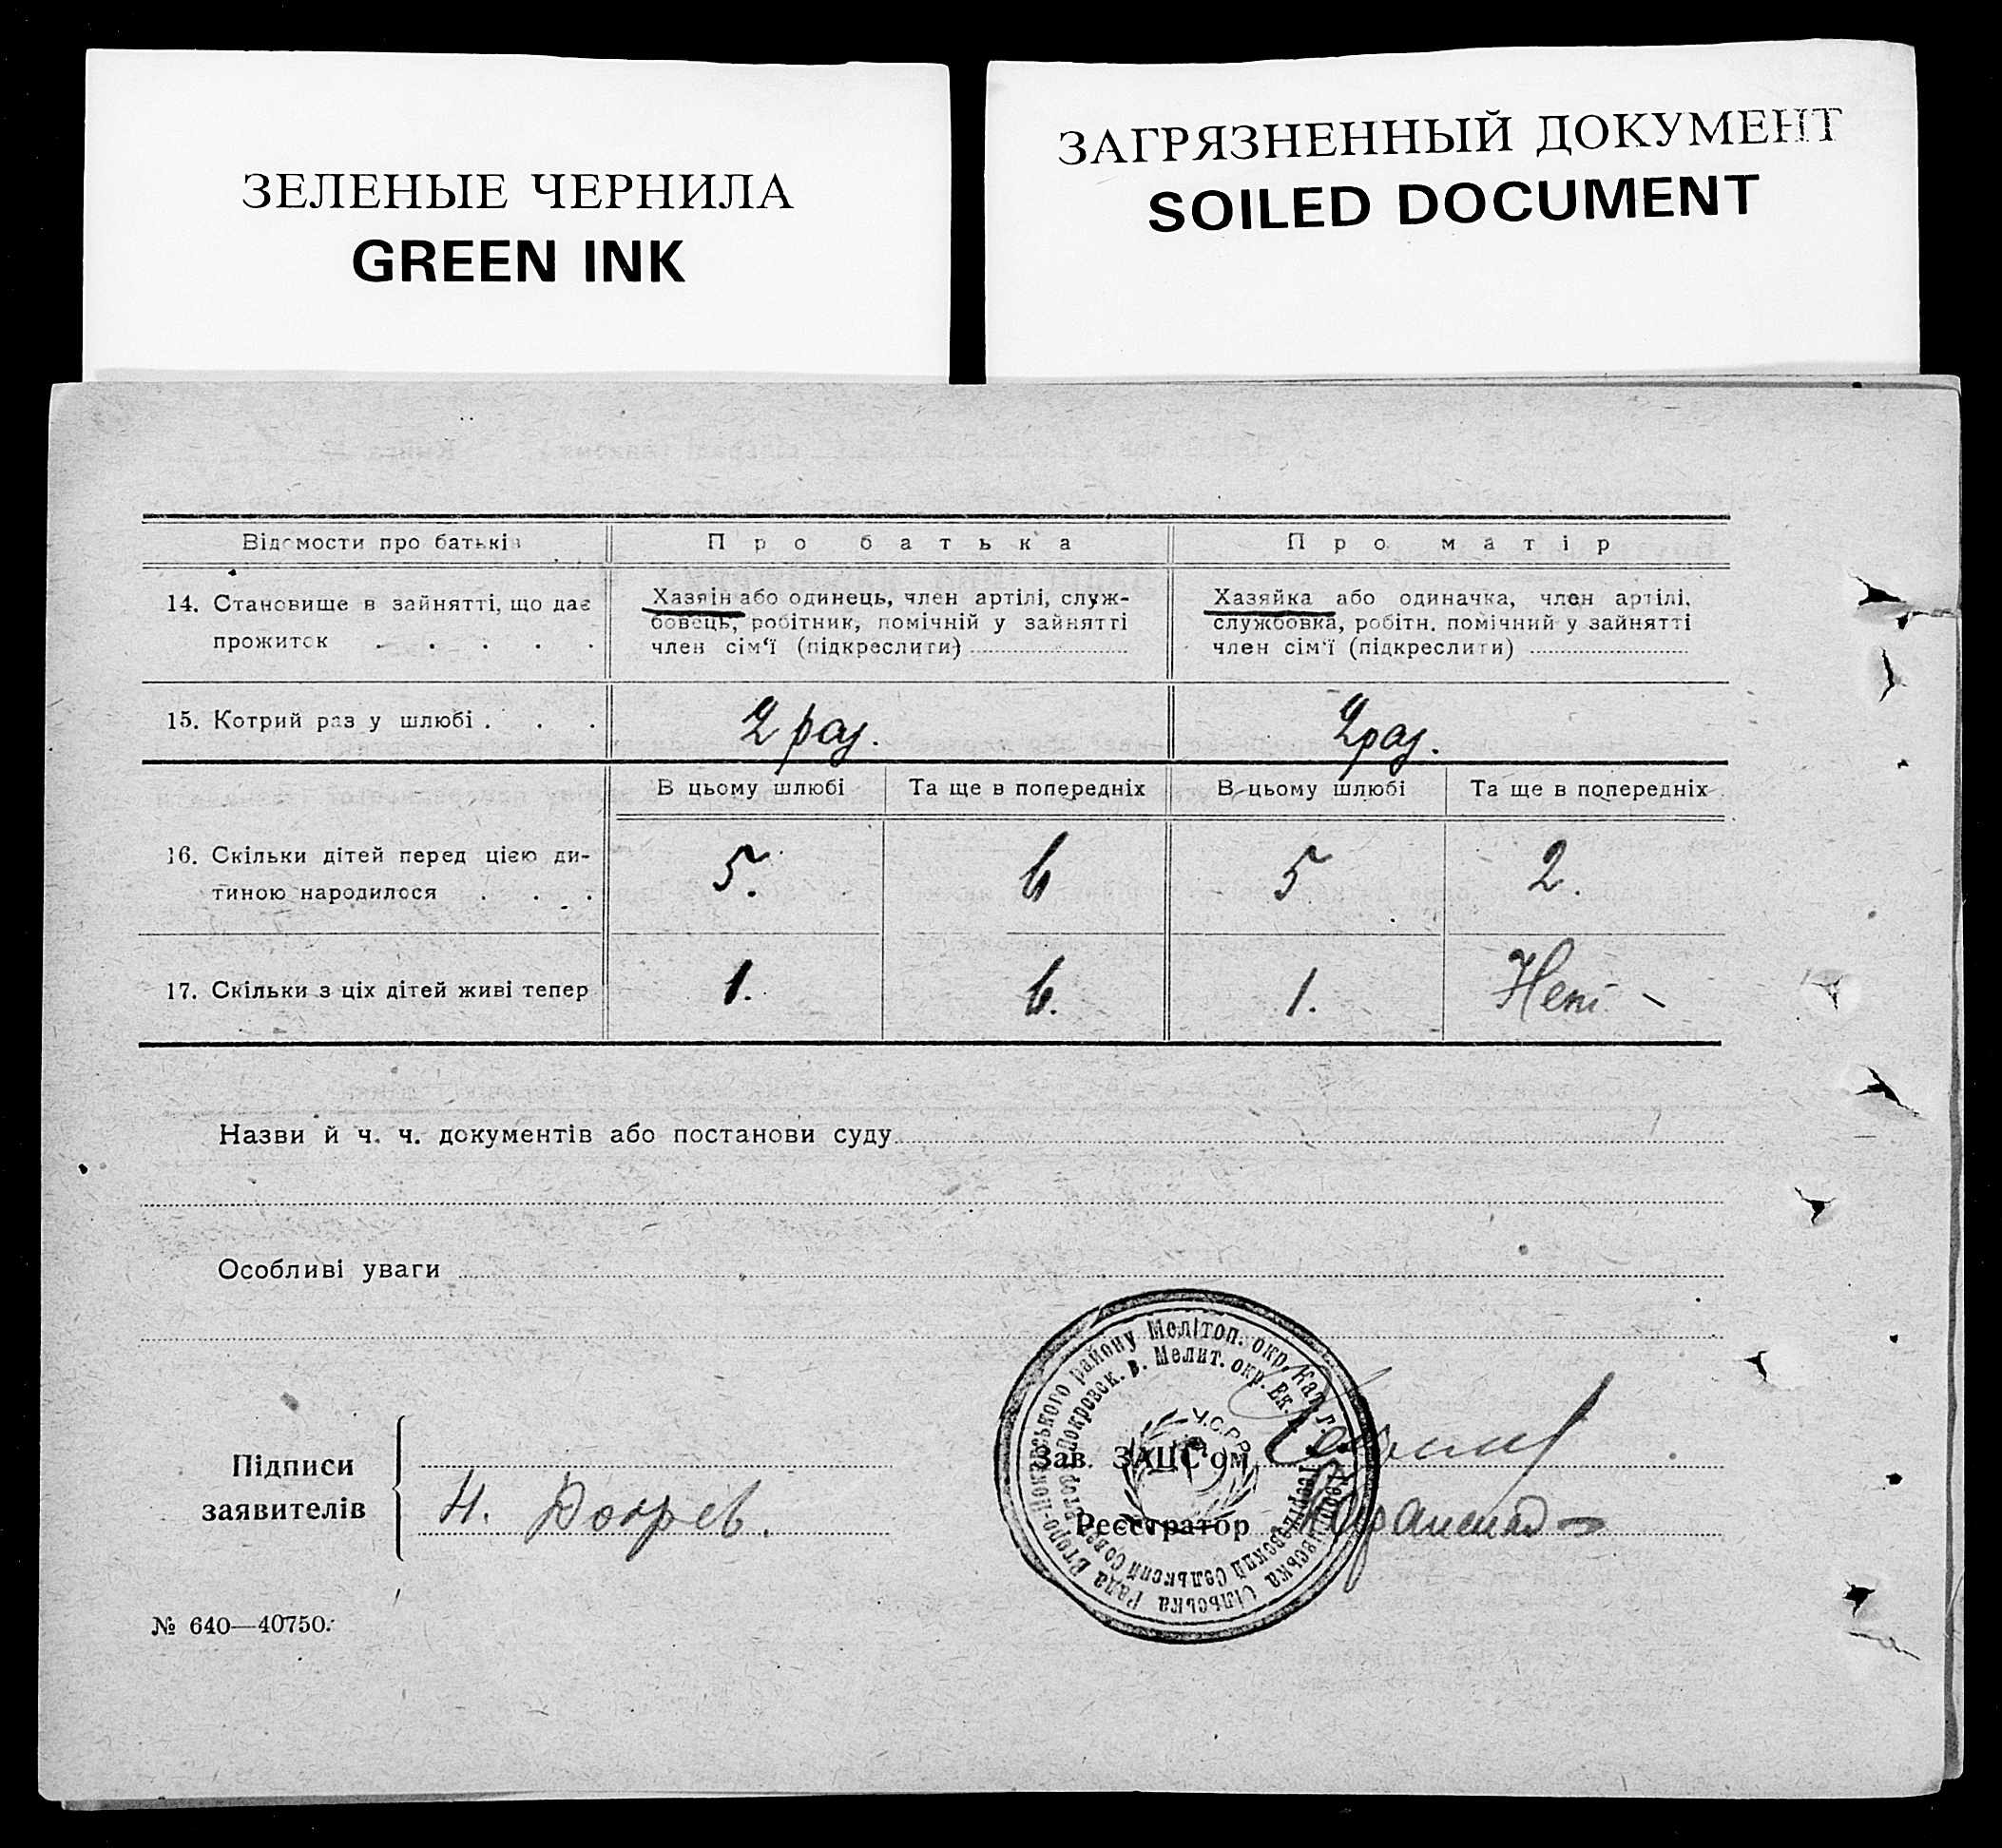 ЗЕЛЕНЫЕ ЧЕРНИЛА
GREEN INK
ЗАГРЯЗНЕННЫЙ ДОКУМЕНТ
SOILED DOCUMENT
Відомости про батьків
Про батька
Про матір
14. Становище в зайнятті, що дає
прожиток . . . . .
Хазяін або одинець, член артілі, служ-
бовець, робітник, помічній у зайнятті
член сім'ї (підкреслити)
Хазяйка або одиначка, член артілі,
службовка, робітн. помічний у зайнятті
член сім'ї (підкреслити)
15. Котрий раз у шлюбі . . .
2 раз.
2 раз.
В цьому шлюбі
Та ще в попередніх
В цьому шлюбі
Та ще в попередніх
16. Скільки дітей перед цією ди-
тиною народилося . . .
5.
6
5
2.
17. Скільки з ціх дітей живі тепер
1.
6.
1.
Нет
Назви й ч. ч. документів або постанови суду
Особливі уваги
Підписи
заявителів
Н.
Зав. ЗАЦС'ом
Реєстратор
Георгіївська Сільська Рада Второ-Покровського району Мелітоп. окр. Кат. г.
Георгиевский Сельский Совет Втор. Покровск. в. Мелит. окр. Ек.
У.С.Р.Р.
№ 640—40750.